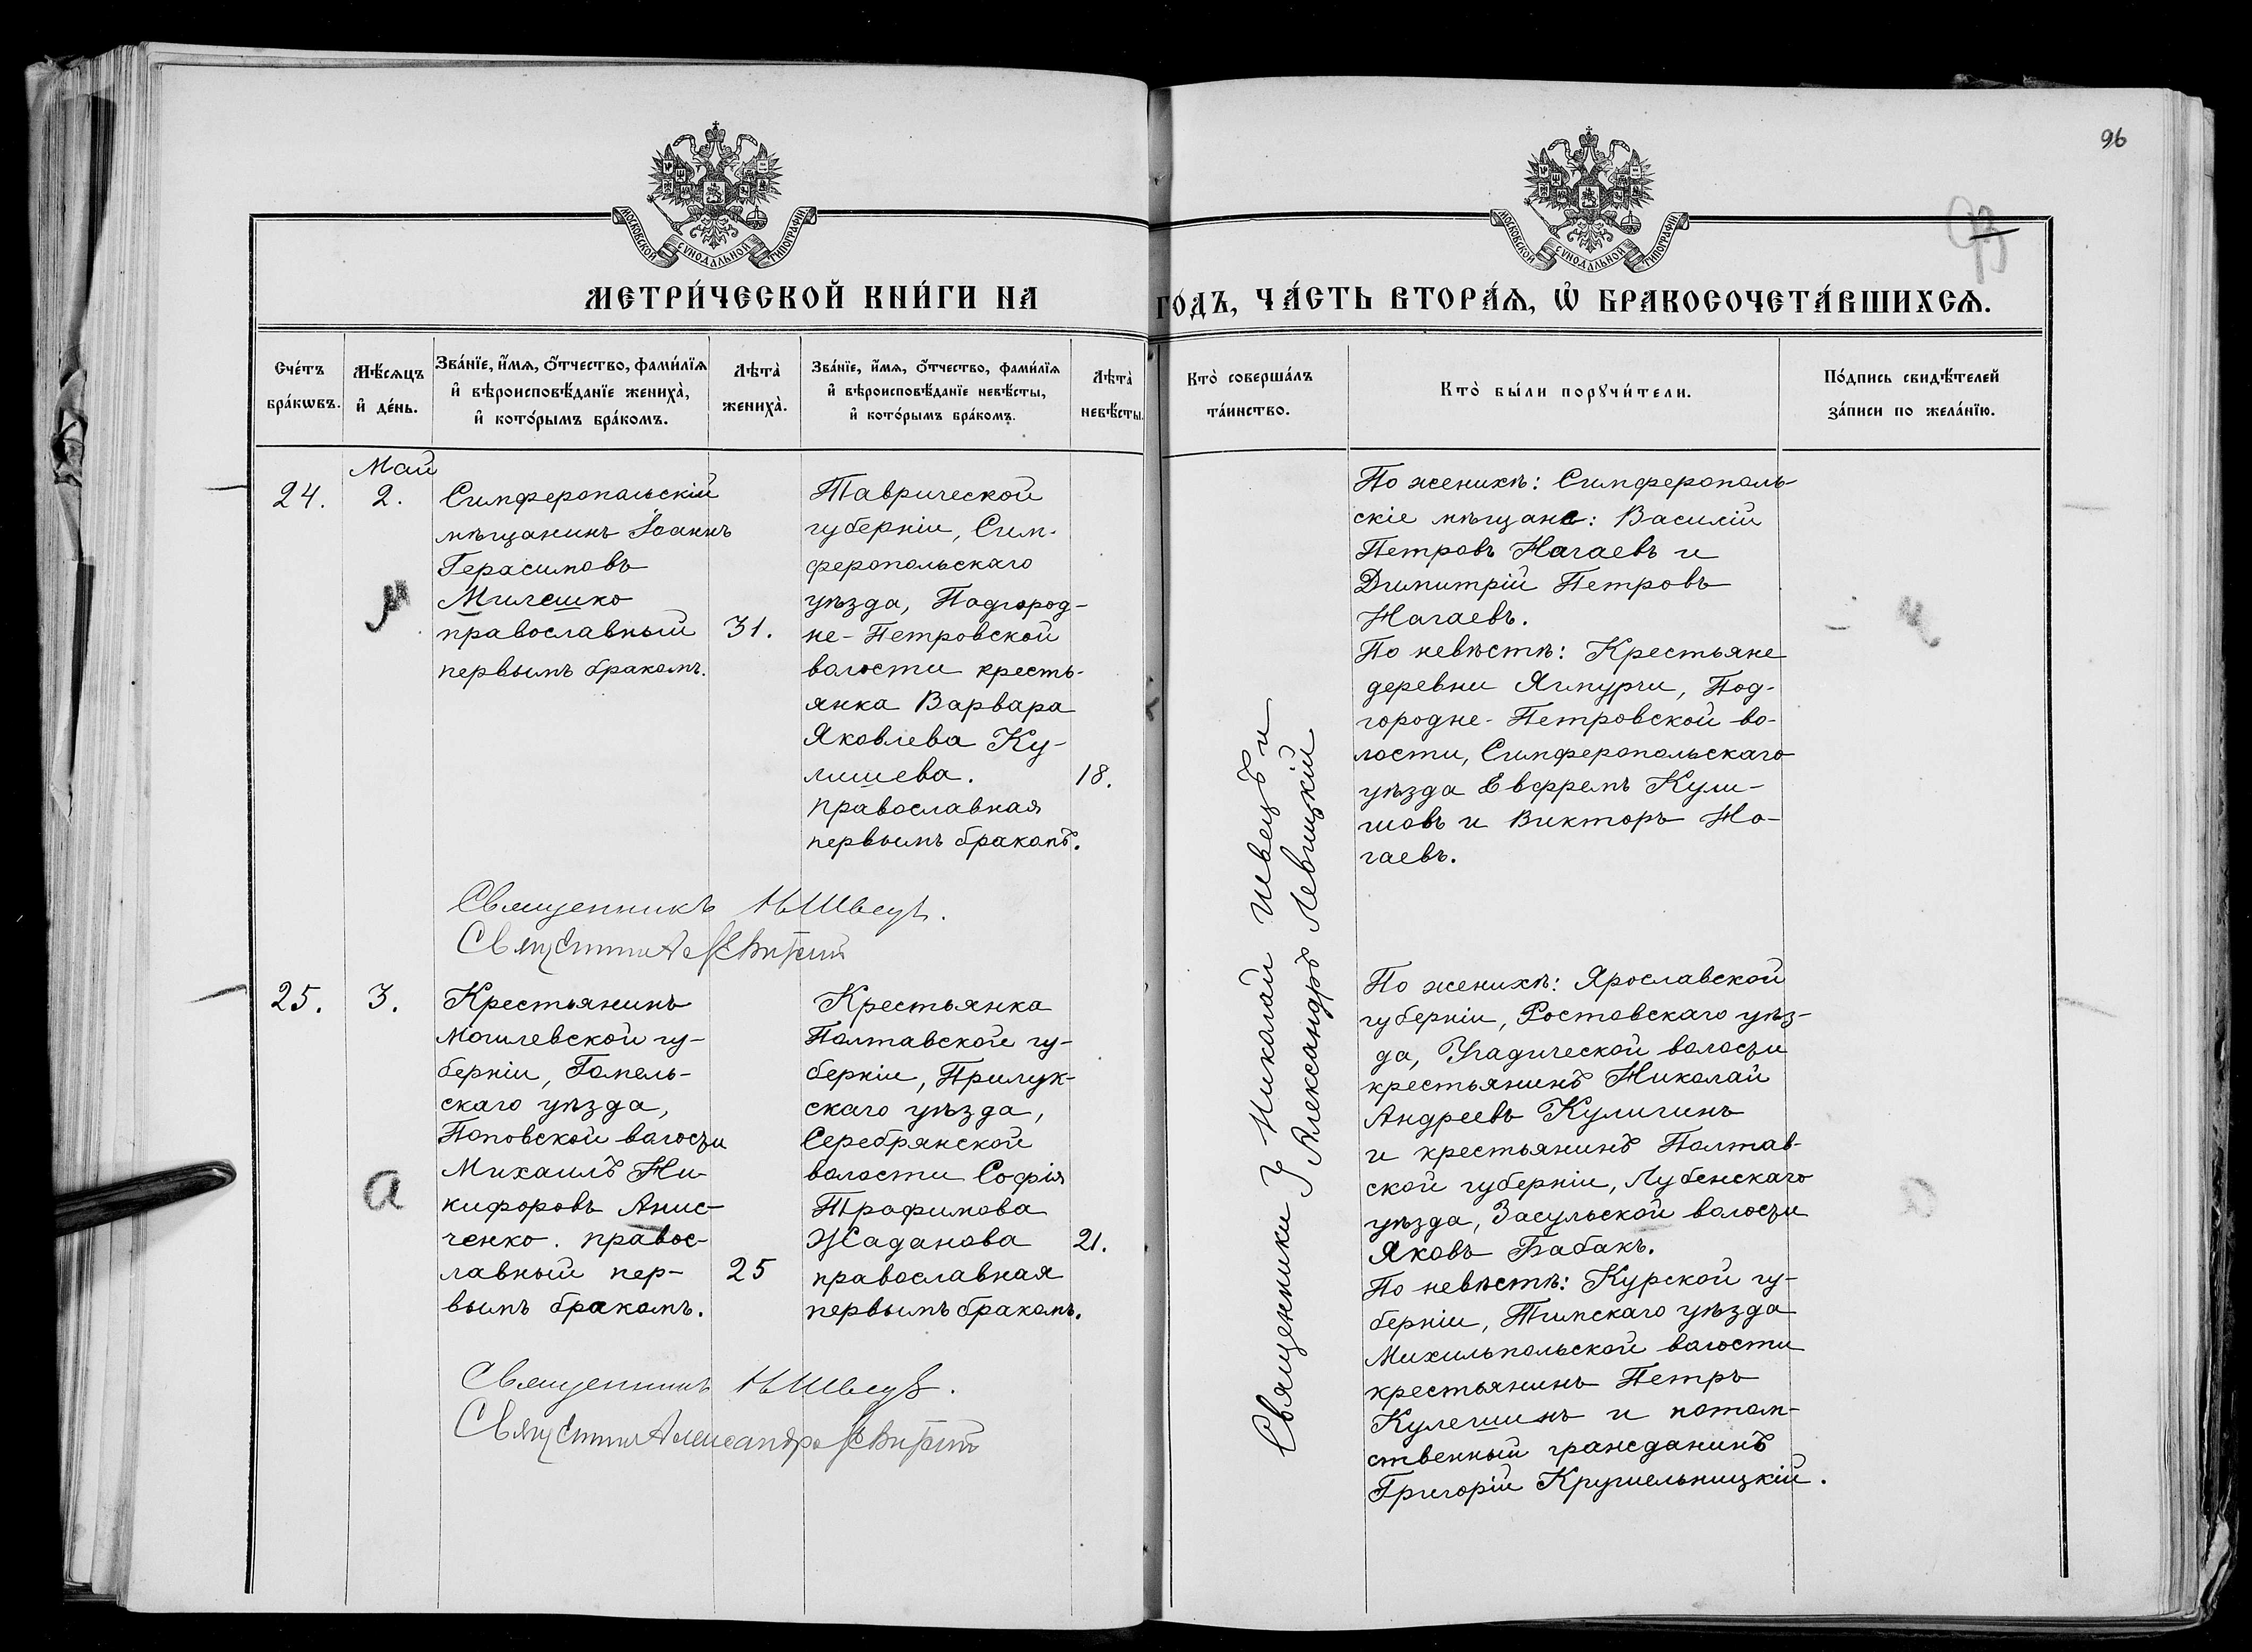 96
93
МОСКОВСКОЙ СѴНОДАЛЬНОЙ ТИПОГРАФІИ
МОСКОВСКОЙ СѴНОДАЛЬНОЙ ТИПОГРАФІИ
МЕТРИ́ЧЕСКОЙ КНИ́ГИ НА
ГО́ДЪ, ЧА́СТЬ ВТОРА́Ѧ, Ѽ БРАКОСОЧЕТА́ВШИХСѦ.
Сче́тъ
бра́кѡвъ.
Мѣ́сѧцъ
и҆ де́нь.
Зва́нїе, и҆́мѧ, о҆́тчество, фами́лїѧ
и҆ вѣроисповѣ́данїе жениха̀,
и҆ кото́рымъ бра́комъ.
Лѣта̀
жениха̀.
Зва́нїе, и҆́мѧ, о҆́тчество, фами́лїѧ
и҆ вѣроисповѣ́данїе невѣ́сты,
и҆ кото́рымъ бра́комъ.
Лѣта̀
невѣ́сты.
Кто̀ соверша́лъ
та́инство.
Кто̀ бы́ли порꙋчи́тели.
По́дпись свидѣ́телей
за́писи по жела́нїю.
Май
24.
2.
Симферопольскій
мѣщанинъ Іоаннъ
Герасимовъ
Милешко
православный
первымъ бракомъ.
31.
Таврической
губерніи, Сим-
феропольскаго
уѣзда, Подгород-
не-Петровской
волости кресть-
янка Варвара
Яковлева Ку-
лишева.
православная
первымъ бракомъ.
18.
Священники Николай Швецъ и
Александръ Левицкій
По женихѣ: Симферополь-
скіе мѣщане: Василій
Петровъ Нагаевъ и
Димитрій Петровъ
Нагаевъ.
По невѣстѣ: Крестьяне
деревни Ягмурчи, Под-
городне-Петровской во-
лости, Симферопольскаго
уѣзда Евфремъ Кули-
шовъ и Викторъ Но-
гаевъ.
м
Священникъ Н Швецъ.
Священникъ А Левицкій
25.
3.
а
Крестьянинъ
Могилевской гу-
берніи, Гомель-
скаго уѣзда,
Поповской волости
Михаилъ Ни-
кифоровъ Анис-
ченко. правос-
лавный пер-
вымъ бракомъ.
25
Крестьянка
Полтавской гу-
берніи, Прилук-
скаго уѣзда,
Серебрянской
волости Софія
Трофимова
Жаданова
православная
первымъ бракомъ.
21.
По женихѣ: Ярославской
губерніи, Ростовскаго уѣз-
да, Угадической волости
крестьянинъ Николай
Андреевъ Куличинъ
и крестьянинъ Полтав-
ской губерніи, Лубенскаго
уѣзда, Засульской волости
Яковъ Бабакъ.
По невѣстѣ: Курской гу-
берніи, Тимскаго уѣзда
Михильпольской волости
крестьянинъ Петръ
Кулешинъ и потом-
ственный гражданинъ
Григорій Крушельницкій.
Священникъ Н Швецъ.
Священникъ Александръ Левицкій